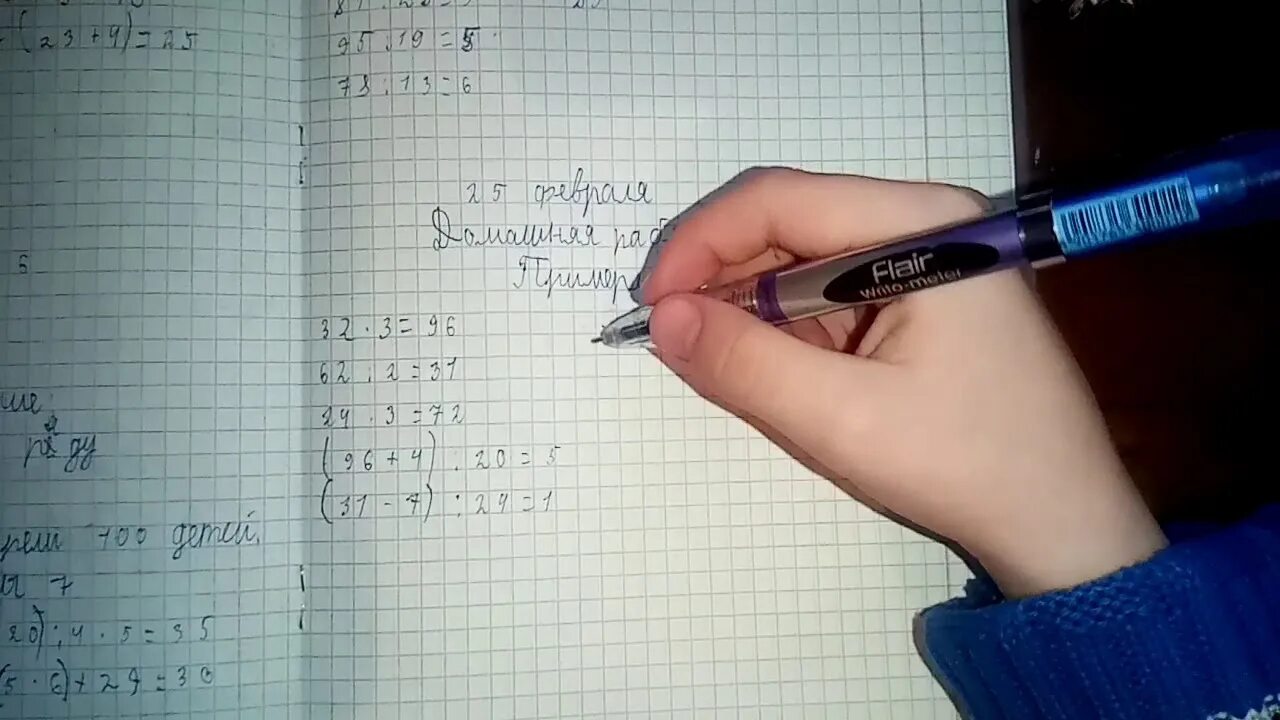 (23+4)=25
6
ряду
рели 100 детей.
7
20):4·5=35
(5·6)+29=30
95:19=5
78:13=6
25 февраля
Домашняя раб
Пример
32·3=96
62:2=31
24·3=72
(96+4):20=5
(31-7):24=1
Flair
Writo-meter